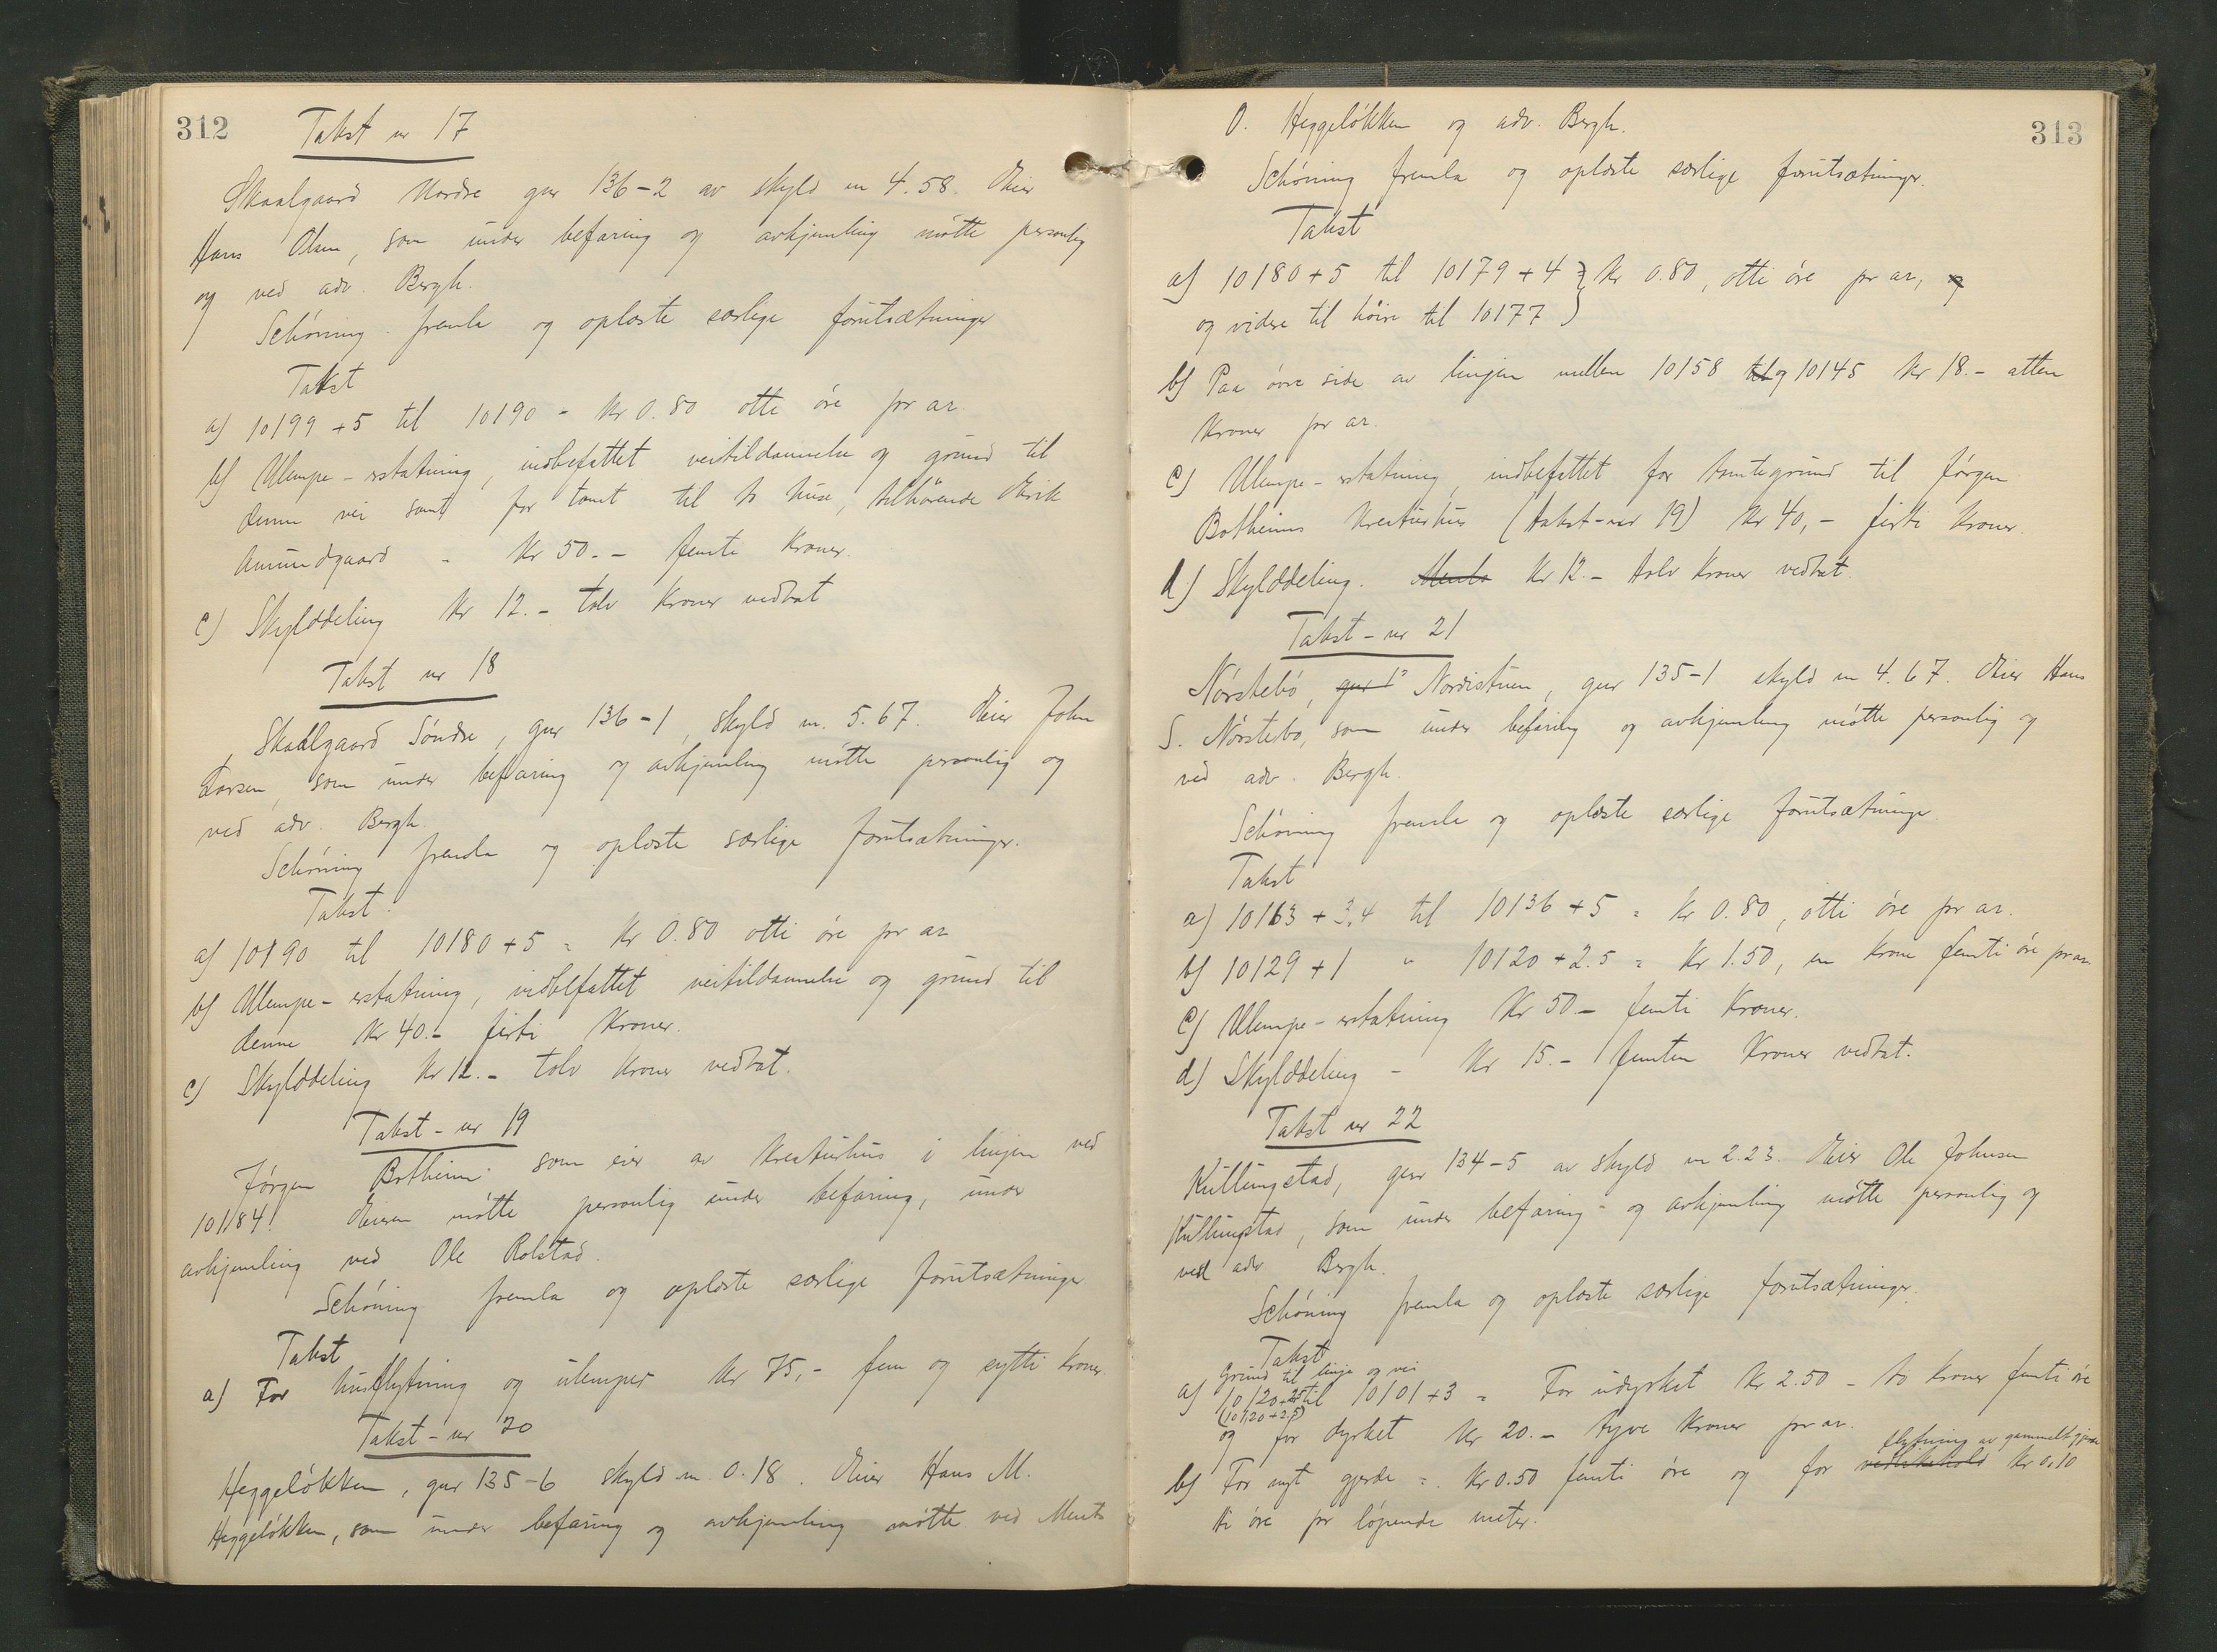 312
Takst nr 17
Skaalgaard Nordre gnr 136-2 av skyld m 4.58. Eier
Hans Olsen, som under befaring og avhjemling møtte personlig
og ved adv. Bergh.
Schøning fremla og oplæste særlige forutsætninger
Takst
a) 10199 +5 til 10190 - kr 0.80 otti øre pr ar.
b) Ulempe-erstatning, indbefattet veitildannelse og grund til
denne vei samt for tomt til to huse, tilhørende Erik
Amundgaard - Kr 50.- femti kroner.
c) Skylddeling kr 12.- tolv kroner vedtat
Takst nr 18
Skaalgaard Søndre, gnr 136-1, skyld m. 5.67. Eier John
Larsen, som under befaring og avhjemling møtte personlig og
ved adv. Bergh.
Schøning fremla og oplæste særlige forutsætninger.
Takst.
a) 10190 til 10180+5 = kr 0.80 otti øre pr ar
b) Ulempe-erstatning, indbefattet veitildannelse og grund til
denne kr 40.- firti kroner.
c) Skylddeling kr 12.- tolv kroner vedtat.
Takst-nr 19
Jørgen Botheim som eier av kreaturhus i linjen ved
10184. Eieren møtte personlig under befaring, under
avhjemling ved Ole Rolstad.
Schøning fremla og oplæste særlige forutsætninger
Takst
a) For husflytning og ulemper kr 75,- fem og sytti kroner.
Takst-nr 20
Heggeløkken, gnr 135-6 skyld m. 0.18. Eier Hans M.
Heggeløkken, som under befaring og avhjemling møtte ved Mentz
313
O. Heggeløkken og adv. Bergh.
Schøning fremla og oplæste særlige forutsætninger.
Takst
a) 10180+5 til 10179+4 } kr 0.80, otti øre pr ar, og
og videre til høire til 10177 }
b) Paa øvre side av linjen mellem 10158 til og 10145 kr 18.- atten
kroner pr ar.
c) Ulempe-erstatning, indbefattet for tomtegrund til Jørgen
Botheims kreaturhus (takst-nr 19) kr 40,- firti kroner.
d) Skylddeling. Mentz Kr 12.- tolv kroner vedtat.
Takst-nr 21
Nørstebø, gnr 1 Nordistuen, gnr 135-1 skyld m 4.67. Eier Hans
S. Nørstebø, som under befaring og avhjemling møtte personlig og
ved adv. Bergh.
Schøning fremla og oplæste særlige forutsætninger
Takst
a) 10163 + 3,4 til 10136 +5 = kr 0.80, otti øre pr ar.
b) 10129 +1 " 10120 +2.5 = kr 1.50, en krone femti øre pr ar.
c) Ulempe-erstatning Kr 50.- femti kroner.
d) Skylddeling - kr 15.- femten kroner vedtat.
Takst nr 22
Kullingstad, gnr 134-5 av skyld m 2.23. Eier Ole Johnsen
Kullingstad, som under befaring og avhjemling møtte personlig og
ved adv Bergh.
Schøning fremla og oplæste særlige forutsætninger.
Takst
Grund til linje og vei
a) 10120+25 til 10101+3 = For udyrket kr 2.50 - to kroner femti øre
(10120+2.5)
og for dyrket kr 20.- tyve kroner pr ar.
flytning av gammelt gjerde
b) For nyt gjerde =. kr 0.50 femti øre og for vedlikehold kr 0.10
ti øre pr løpende meter.